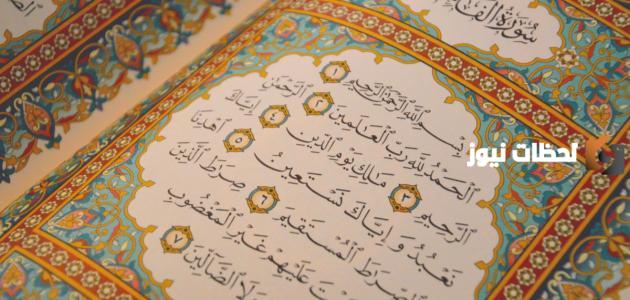 سُورَةُ
بِسْمِ ٱللَّهِ ٱلرَّحْمَٰنِ ٱلرَّحِيمِ ١
ٱلْحَمْدُ لِلَّهِ رَبِّ ٱلْعَٰلَمِينَ ٢ ٱلرَّحْمَٰنِ
ٱلرَّحِيمِ ٣ مَٰلِكِ يَوْمِ ٱلدِّينِ ٤ إِيَّاكَ
نَعْبُدُ وَإِيَّاكَ نَسْتَعِينُ ٥ ٱهْدِنَا
ٱلصِّرَٰطَ ٱلْمُسْتَقِيمَ ٦ صِرَٰطَ ٱلَّذِينَ
عَلَيْهِمْ غَيْرِ ٱلْمَغْضُوبِ
ٱلضَّآلِّينَ ٧
لحظات نيوز